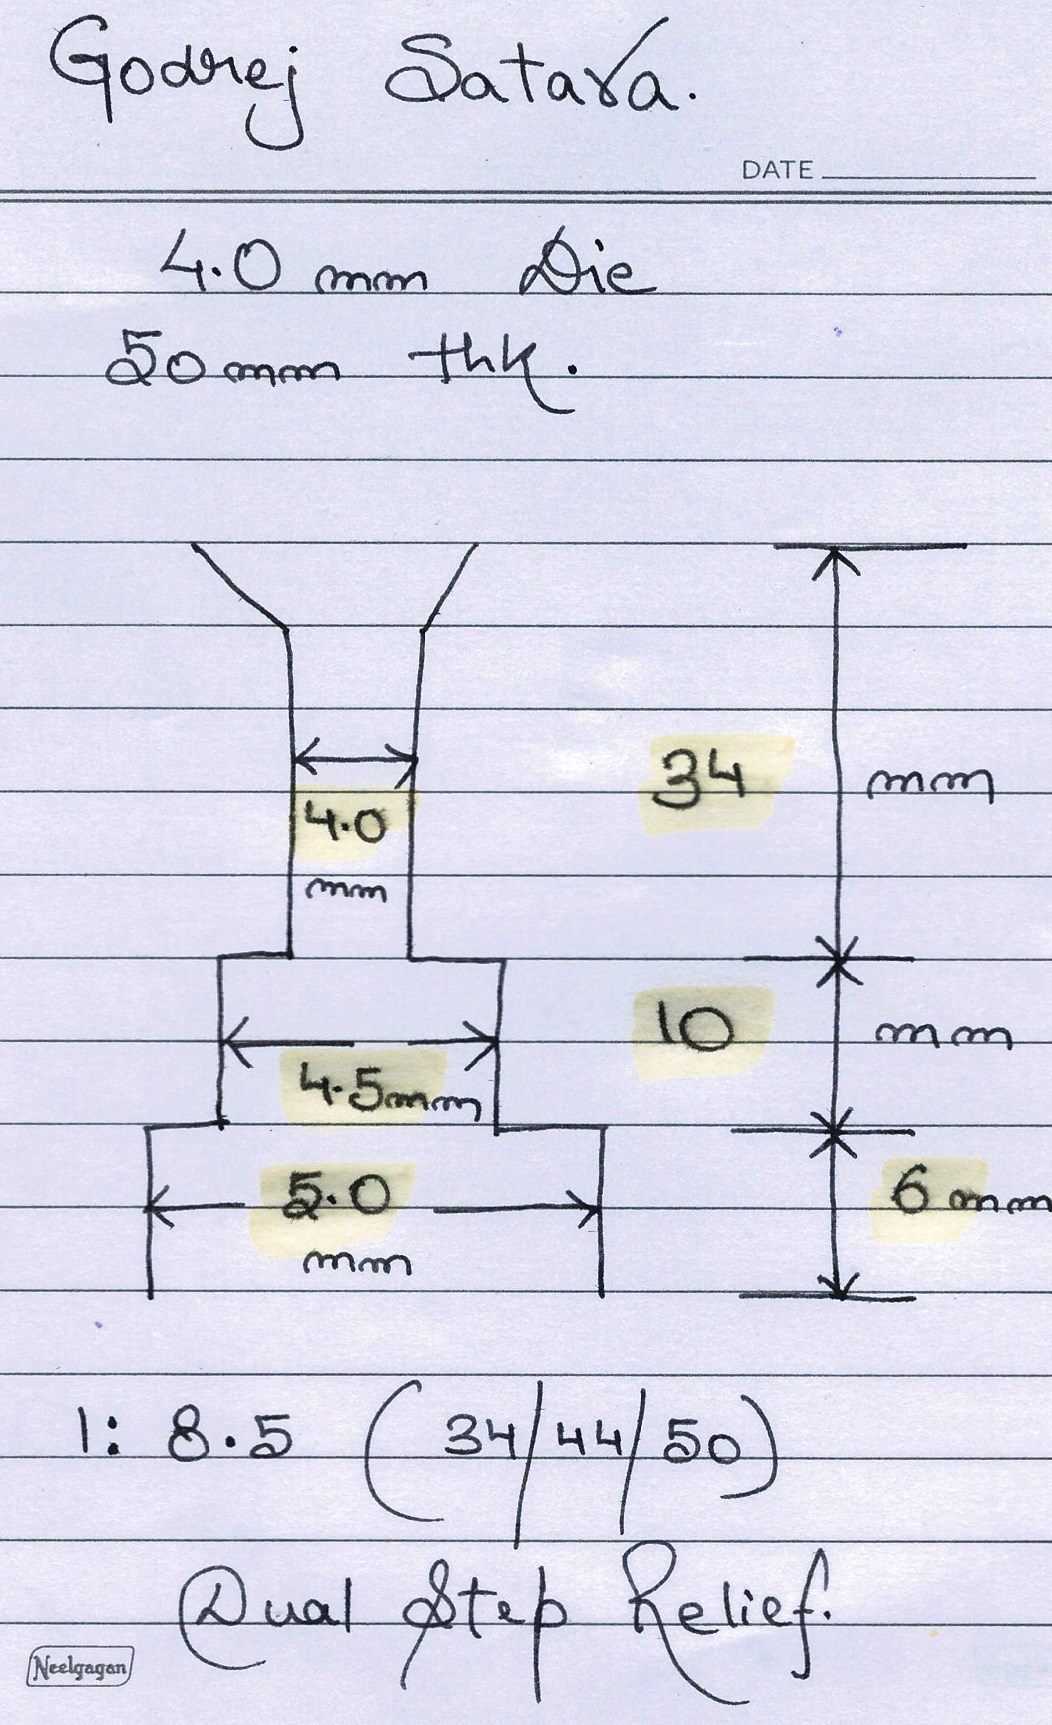 Godrej Satara.
DATE
4.0 mm Die
50 mm thk.
34 mm
4.0
mm
10 mm
4.5mm
5.0
mm
6 mm
1: 8.5 (34/44/50)
Dual Step Relief.
Neelgagan